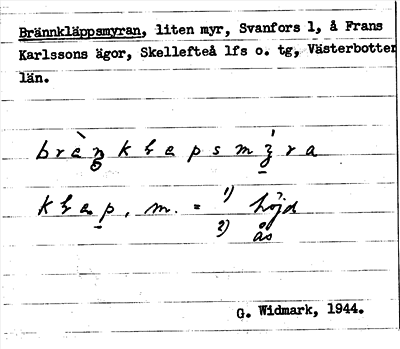 Brännkläppsmyran, liten myr, Svanfors 1, å Frans
Karlssons ägor, Skellefteå lfs o. tg, Västerbotten
län.
kḷap, m. = 1) höjd
2) ås
G. Widmark, 1944.